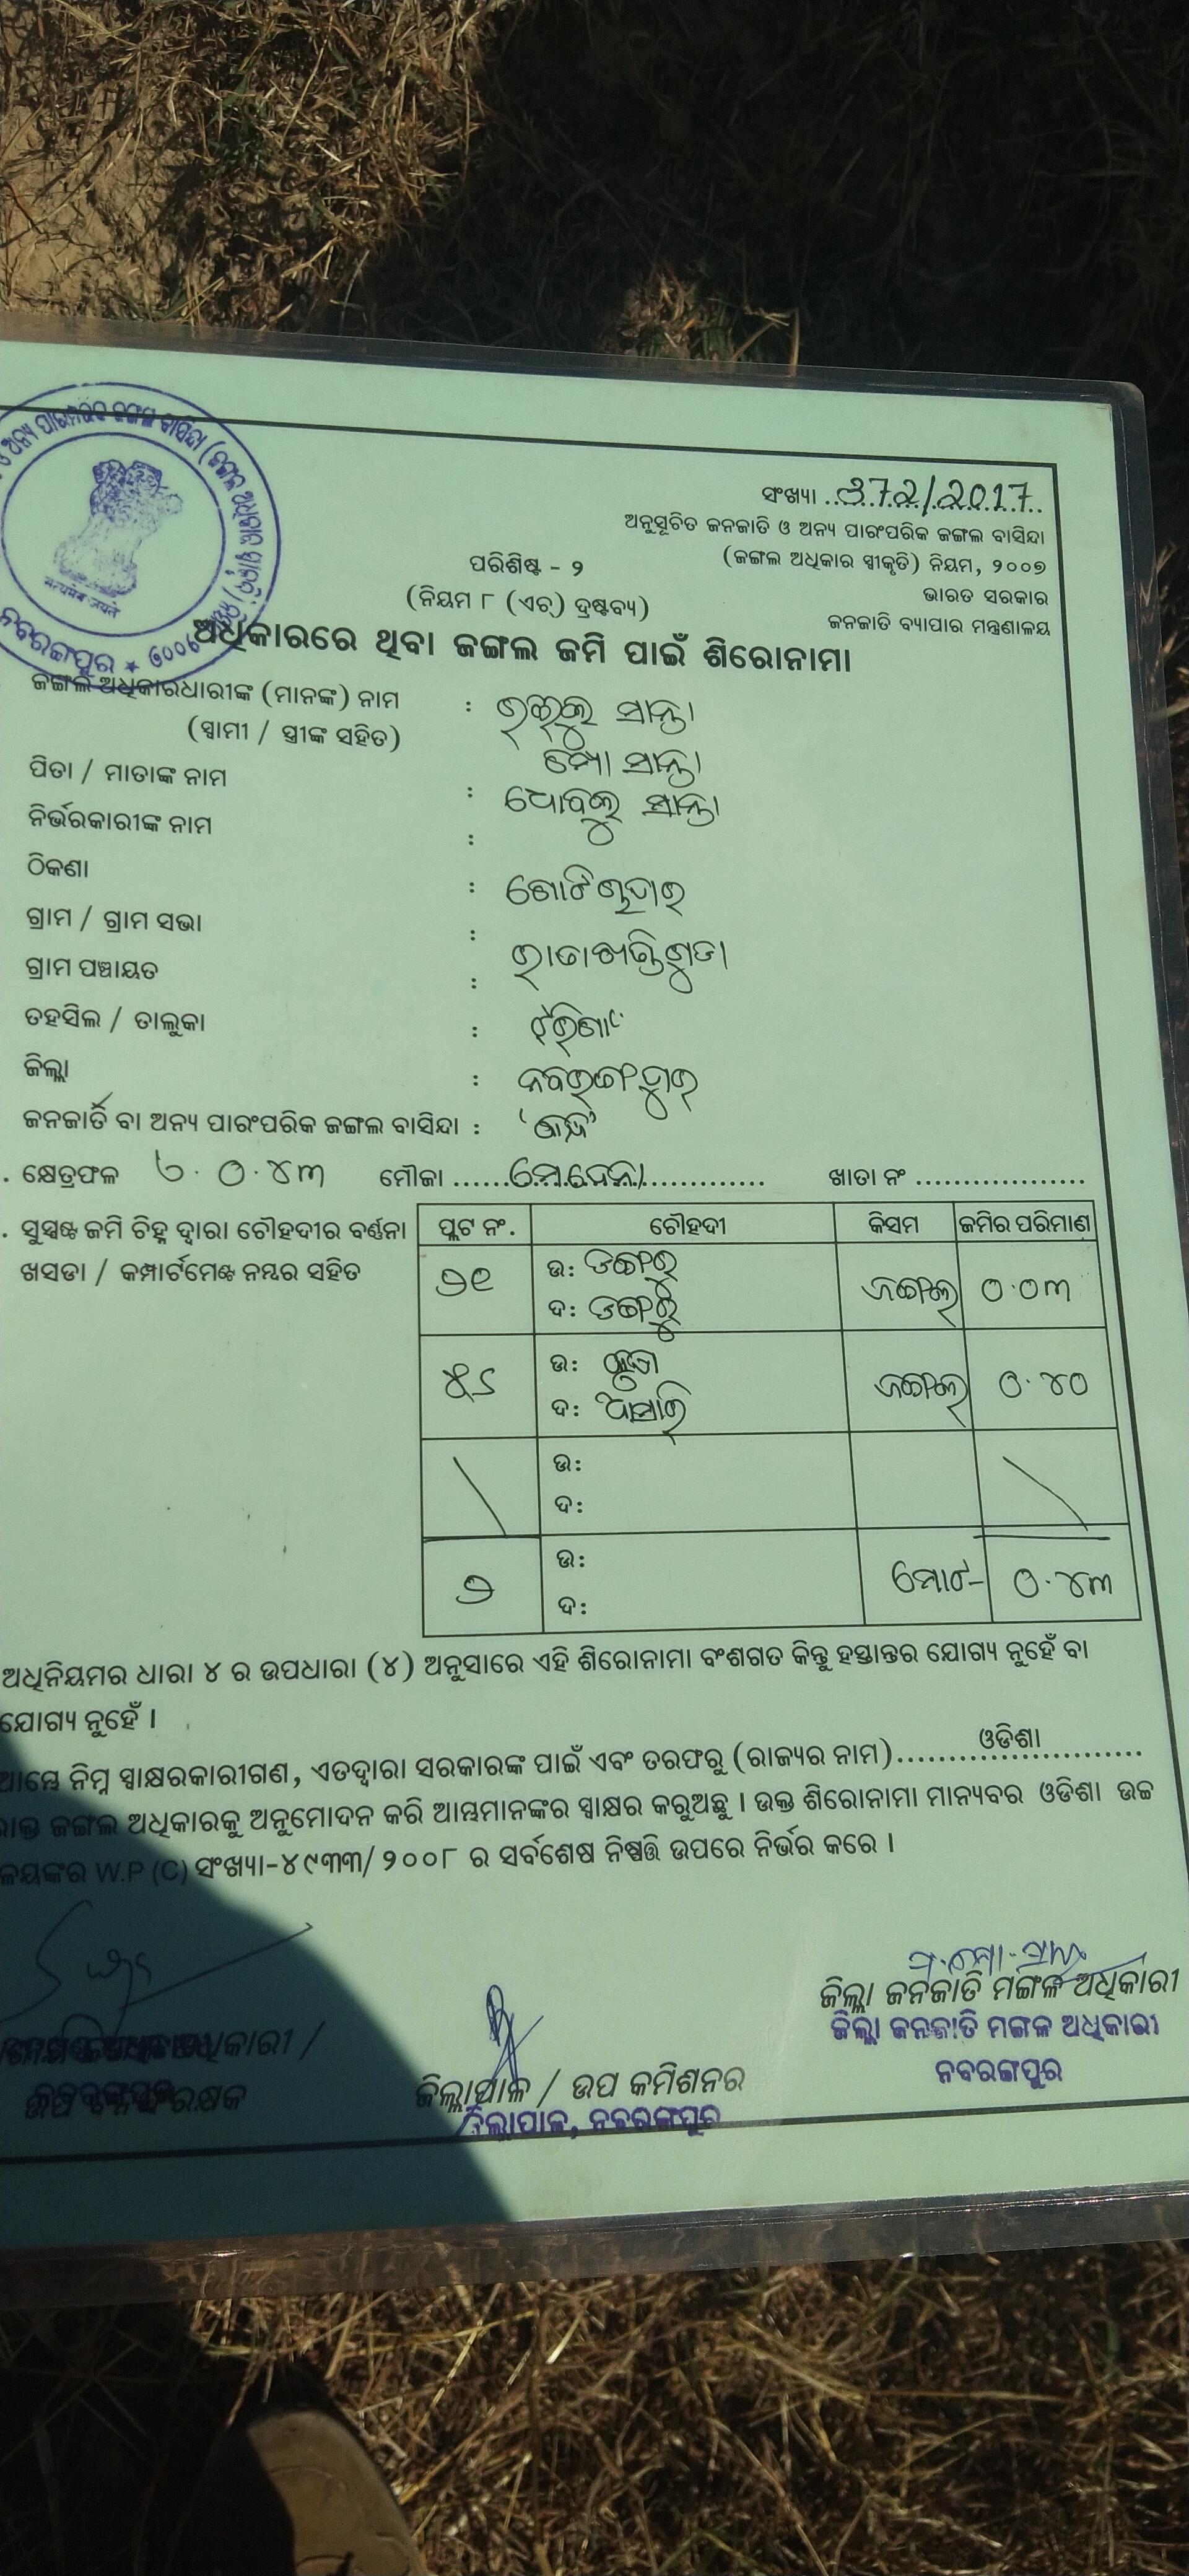 ସଂଖ୍ୟା ..372/2017..
ଅନୁସୂଚିତ ଜନଜାତି ଓ ଅନ୍ୟ ପାରଂପରିକ ଜଙ୍ଗଲ ବାସିନ୍ଦା
(ଜଙ୍ଗଲ ଅଧିକାର ସ୍ୱୀକୃତି) ନିୟମ, ୨୦୦୭
ପରିଶିଷ୍ଟ - ୨
ଭାରତ ସରକାର
(ନିୟମ ୮ (ଏଚ୍) ଦ୍ରଷ୍ଟବ୍ୟ)
ଜନଜାତି ବ୍ୟାପାର ମନ୍ତ୍ରଣାଳୟ
ନବରଙ୍ଗପୁର
सत्यमेव जयते
ଅଧିକାରରେ ଥିବା ଜଙ୍ଗଲ ଜମି ପାଇଁ ଶିରୋନାମା
ଜଙ୍ଗଲ ଅଧିକାରଧାରୀଙ୍କ (ମାନଙ୍କ) ନାମ : ସାନ୍ତା
(ସ୍ୱାମୀ / ସ୍ତ୍ରୀଙ୍କ ସହିତ) ସାନ୍ତା
ପିତା / ମାତାଙ୍କ ନାମ : ଧୋବଲୁ ସାନ୍ତା
ନିର୍ଭରକାରୀଙ୍କ ନାମ :
ଠିକଣା :
ଗ୍ରାମ / ଗ୍ରାମ ସଭା :
ଗ୍ରାମ ପଞ୍ଚାୟତ :
ତହସିଲ / ତାଲୁକା : ଝରିଗାଁ
ଜିଲ୍ଲା : ନବରଙ୍ଗପୁର
ଜନଜାତି ବା ଅନ୍ୟ ପାରଂପରିକ ଜଙ୍ଗଲ ବାସିନ୍ଦା :
. କ୍ଷେତ୍ରଫଳ ୦.୪୩ ମୌଜା ............ ଖାତା ନଂ ..................
. ସୁସ୍ପଷ୍ଟ ଜମି ଚିହ୍ନ ଦ୍ୱାରା ଚୌହଦୀର ବର୍ଣ୍ଣନା
ଖସଡା / କମ୍ପାର୍ଟମେଣ୍ଟ ନମ୍ବର ସହିତ
ପ୍ଲଟ ନଂ. ଚୌହଦୀ କିସମ ଜମିର ପରିମାଣ
୭୧ ଉ: ଡଙ୍ଗର ଜଙ୍ଗଲ ୦.୦୩
ଦ: ଡଙ୍ଗର
ଉ: ଜଙ୍ଗଲ ୦.୪୦
ଦ:
ଉ:
ଦ:
୨ ଉ: ମୋଟ- ୦.୪୩
ଦ:
ଅଧିନିୟମର ଧାରା ୪ ର ଉପଧାରା (୪) ଅନୁସାରେ ଏହି ଶିରୋନାମା ବଂଶଗତ କିନ୍ତୁ ହସ୍ତାନ୍ତର ଯୋଗ୍ୟ ନୁହେଁ ବା
ଯୋଗ୍ୟ ନୁହେଁ ।
ଆମ୍ଭେ ନିମ୍ନ ସ୍ୱାକ୍ଷରକାରୀଗଣ, ଏତଦ୍ୱାରା ସରକାରଙ୍କ ପାଇଁ ଏବଂ ତରଫରୁ (ରାଜ୍ୟର ନାମ)..........ଓଡିଶା..........
ଜଙ୍ଗଲ ଅଧିକାରକୁ ଅନୁମୋଦନ କରି ଆମ୍ଭମାନଙ୍କର ସ୍ୱାକ୍ଷର କରୁଅଛୁ । ଉକ୍ତ ଶିରୋନାମା ମାନ୍ୟବର ଓଡିଶା ଉଚ୍ଚ
W.P (C) ସଂଖ୍ୟା-୪୯୩୩/୨୦୦୮ ର ସର୍ବଶେଷ ନିଷ୍ପତ୍ତି ଉପରେ ନିର୍ଭର କରେ ।
ଜିଲ୍ଲା ଜନଜାତି ମଙ୍ଗଳ ଅଧିକାରୀ
ଜିଲ୍ଲା ଜନଜାତି ମଙ୍ଗଳ ଅଧିକାରୀ
ନବରଙ୍ଗପୁର
ଜିଲ୍ଲାପାଳ / ଉପ କମିଶନର
ଜିଲ୍ଲାପାଳ, ନବରଙ୍ଗପୁର